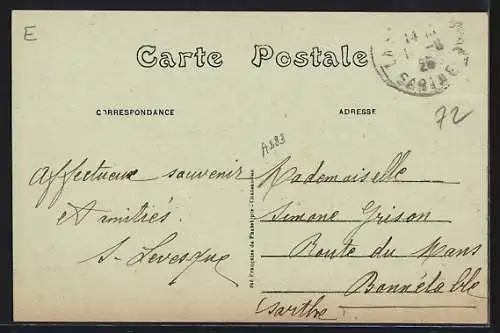 E
Carte Postale
CORRESPONDANCE
ADRESSE
72
A583
Affectueux souvenir
et amitiés.
S. Levesque
Mademoiselle
Simone Grison
Route du Mans
Bonnétable
Sarthe
SARTHE